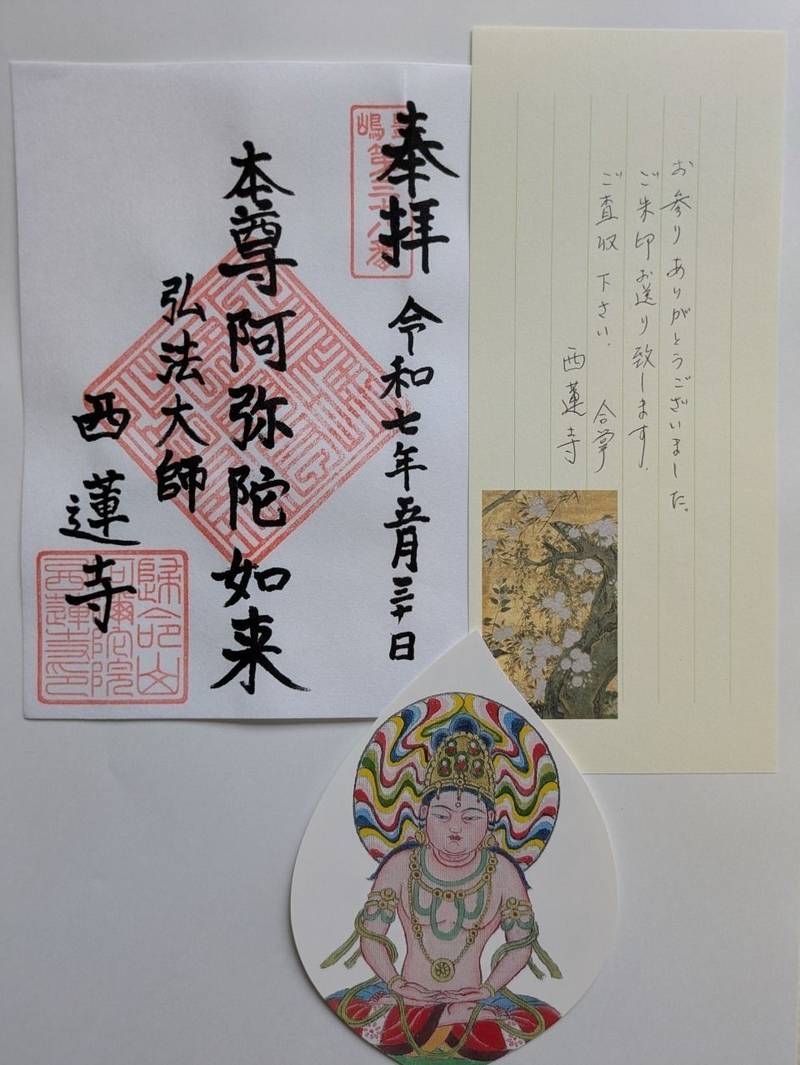 奉拝 令和七年五月三十日
本尊阿弥陀如来
弘法大師
西蓮寺
歸命山
阿彌陀院
西蓮寺印
お参りありがとうございました。
ご朱印お送り致します。
ご査収下さい. 合掌
西蓮寺